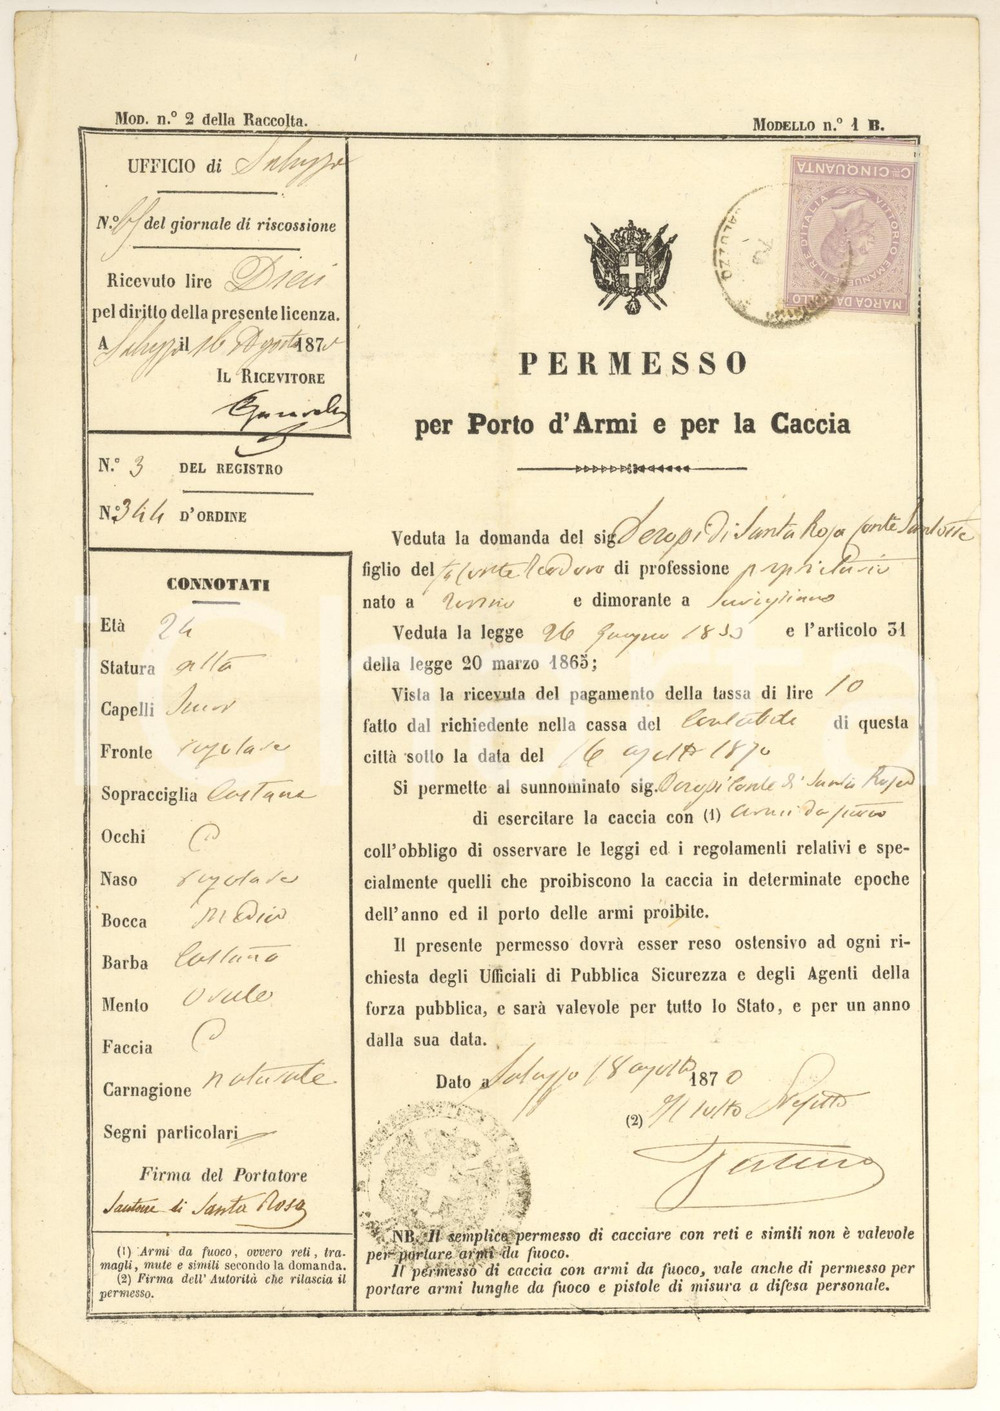 Mod. n.° 2 della Raccolta.
Modello n.° 1 B.
UFFICIO di Saluzzo
N.° del giornale di riscossione
Ricevuto lire Dieci
pel diritto della presente licenza.
A Saluzzo il 16 Agosto 1870
Il Ricevitore
N.° 3 del Registro
N.° 344 d'Ordine
CONNOTATI
Età 24
Statura alta
Capelli
Fronte regolare
Sopracciglia Castane
Occhi
Naso regolare
Bocca media
Barba Castana
Mento Ovale
Faccia
Carnagione naturale
Segni particolari
Firma del Portatore
Santorre di Santa Rosa
(1) Armi da fuoco, ovvero reti, tra-
magli, mute e simili secondo la domanda.
(2) Firma dell'Autorità che rilascia il
permesso.
C.mi CINQUANTA
VITTORIO EMANUELE II RE D'ITALIA
MARCA DA BOLLO
SALUZZO
70
PERMESSO
per Porto d'Armi e per la Caccia
Veduta la domanda del sig. Derossi Di Santa Rosa Conte Santorre
figlio del Conte Teodoro di professione proprietario
nato a Torino e dimorante a Savigliano
Veduta la legge 26 giugno 1853 e l'articolo 31
della legge 20 marzo 1865;
Vista la ricevuta del pagamento della tassa di lire 10
fatto dal richiedente nella cassa del Contabile di questa
città sotto la data del 16 agosto 1870
Si permette al sunnominato sig. Derossi Conte di Santa Rosa
di esercitare la caccia con (1) armi da fuoco
coll'obbligo di osservare le leggi ed i regolamenti relativi e spe-
cialmente quelli che proibiscono la caccia in determinate epoche
dell'anno ed il porto delle armi proibite.
Il presente permesso dovrà esser reso ostensivo ad ogni ri-
chiesta degli Ufficiali di Pubblica Sicurezza e degli Agenti della
forza pubblica, e sarà valevole per tutto lo Stato, e per un anno
dalla sua data.
Dato a Saluzzo 18 agosto 1870
(2) Il Sotto Prefetto
NB. Il semplice permesso di cacciare con reti e simili non è valevole
per portare armi da fuoco.
Il permesso di caccia con armi da fuoco, vale anche di permesso per
portare armi lunghe da fuoco e pistole di misura a difesa personale.